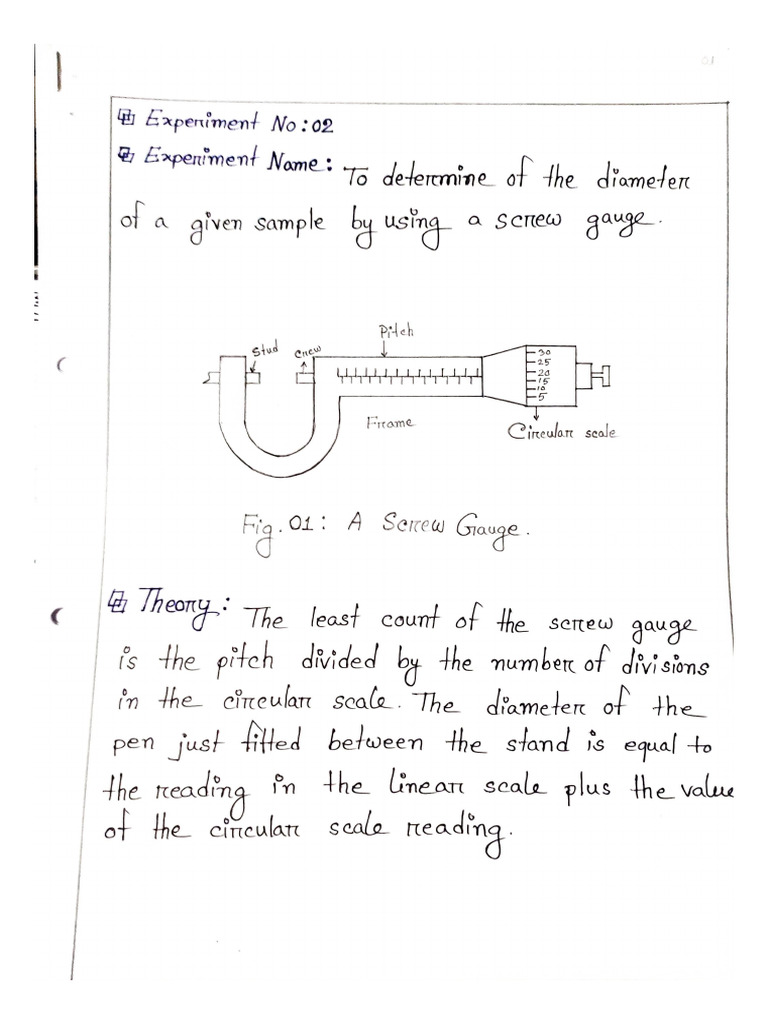 01
Experiment No: 02
Experiment Name: To determine of the diameter
of a given sample by using a screw gauge.
Pitch
Stud
Crew
30
25
20
15
10
5
Frame
Circular scale
Fig. 01: A Screw Gauge.
Theory: The least count of the screw gauge
is the pitch divided by the number of divisions
in the circular scale. The diameter of the
pen just fitted between the stand is equal to
the reading in the linear scale plus the value
of the circular scale reading.